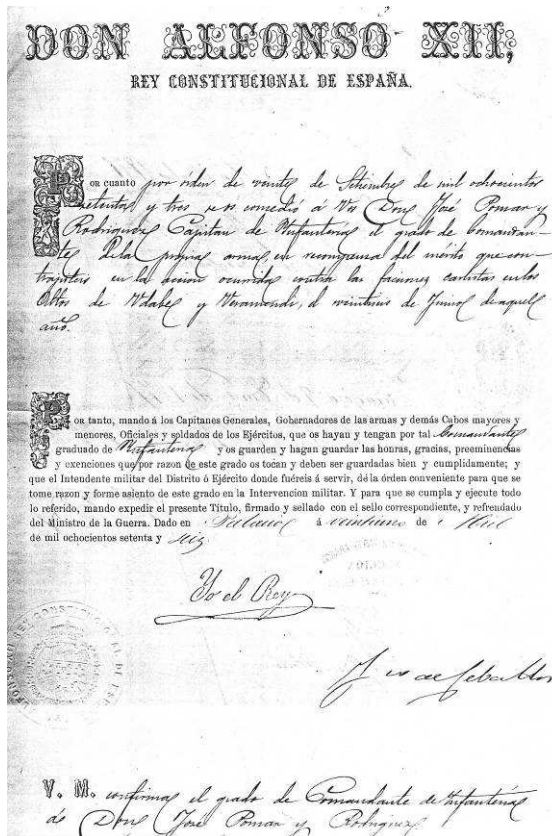 DON ALFONSO XII,
REY CONSTITUCIONAL DE ESPAÑA.
Por cuanto por órden de veinte de Setiembre de mil ochocientos
setenta y tres se os concedió á Vos Don José Pomar y
Rodriguez Capitan de Infanteria el grado de Comandan-
te de la propia arma, en recompensa del mérito que con-
trajisteis en la accion ocurrida contra las facciones carlistas en los
Altos de Udabe y Veramendi, el veintiseis de Junio de aquel
año.
Por tanto, mando á los Capitanes Generales, Gobernadores de las armas y demás Cabos mayores y
menores, Oficiales y soldados de los Ejércitos, que os hayan y tengan por tal Comandante
graduado de Infanteria y os guarden y hagan guardar las honras, gracias, preeminencias
y exenciones que por razon de este grado os tocan y deben ser guardadas bien y cumplidamente; y
que el Intendente militar del Distrito ó Ejército donde fuéreis á servir, dé la órden conveniente para que se
tome razon y forme asiento de este grado en la Intervencion militar. Y para que se cumpla y ejecute todo
lo referido, mando expedir el presente Título, firmado y sellado con el sello correspondiente, y refrendado
del Ministro de la Guerra. Dado en Palacio á veintiuno de
de mil ochocientos setenta y seis
Yo el Rey
de Ceballos
V. M. confirma el grado de Comandante de Infanteria
á Don José Pomar y Rodriguez